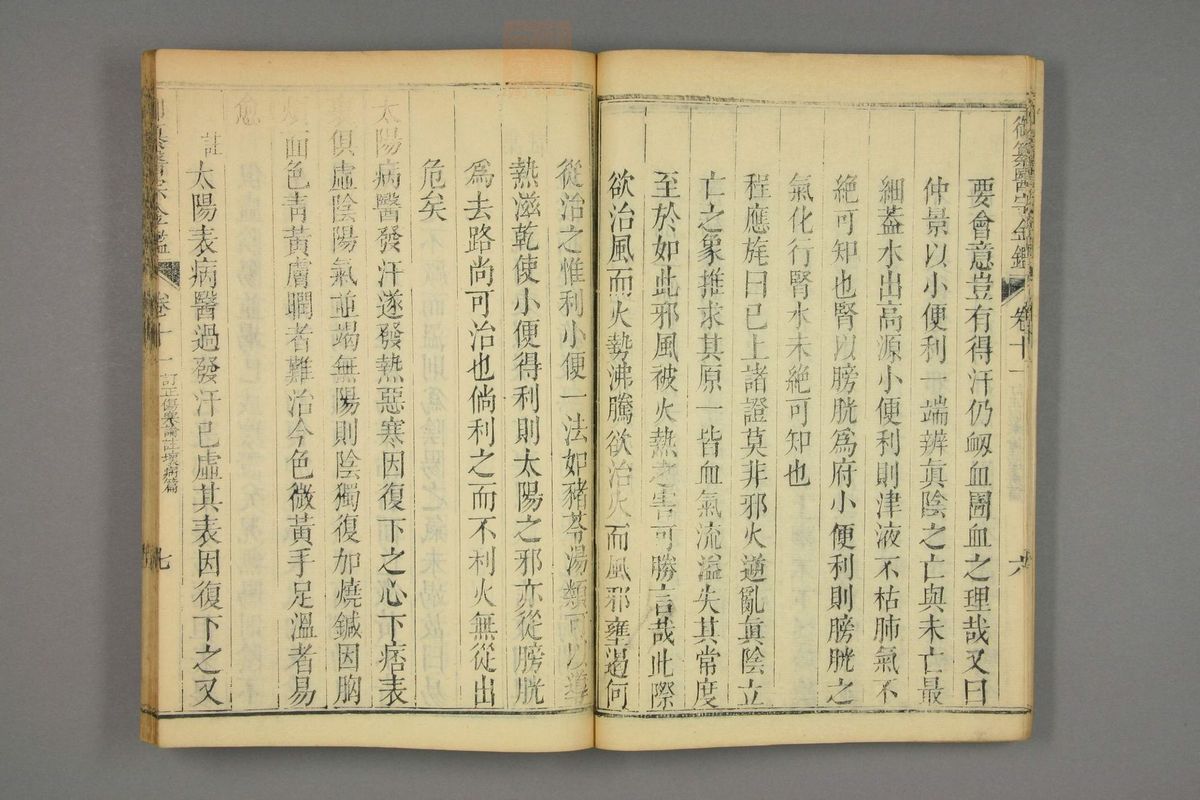 御纂醫宗金鑑 卷十一 六
要會意豈有得汗仍衂血圊血之理哉又曰
仲景以小便利一端辨眞陰之亡與未亡最
細蓋水出高源小便利則津液不枯肺氣不
絕可知也腎以膀胱爲府小便利則膀胱之
氣化行腎水未絕可知也
程應旄曰已上諸證莫非邪火逼亂眞陰立
亡之象推求其原一皆血氣流溢失其常度
至於如此邪風被火熱之害可勝言哉此際
欲治風而火勢沸騰欲治火而風邪壅遏何
從治之惟利小便一法如豬苓湯類可以導
熱滋乾使小便得利則太陽之邪亦從膀胱
爲去路尚可治也倘利之而不利火無從出
危矣
太陽病醫發汗遂發熱惡寒因復下之心下痞表
俱虛陰陽氣並竭無陽則陰獨復加燒鍼因胸
面色靑黃膚瞤者難治今色微黃手足溫者易
愈
註 太陽表病醫過發汗已虛其表因復下之又
醫宗金鑑 卷十一 訂正傷寒論註壞病篇 七